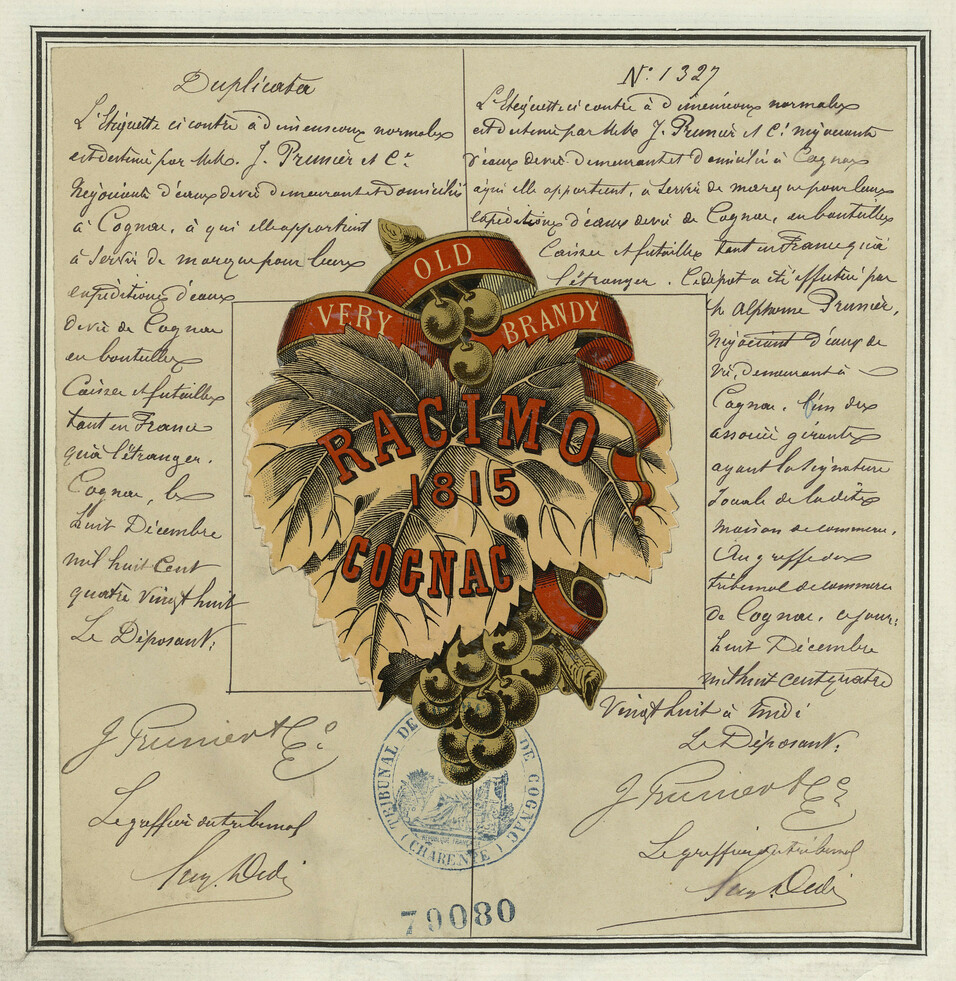 Duplicata
L'Etiquette ci contre à dimensions normales
est destiné par M.M. J. Prunier et Cie
Négociants d'eaux de vie demeurant et domicilié
à Cognac, à qui elle appartient
à servir de marque pour leurs
expéditions d'eaux
de vie de Cognac
en bouteilles
Caisses et futailles
tant en France
qu'à l'étranger.
Cognac, le
huit Décembre
mil huit cent
quatre vingt huit
Le Déposant:
J. Prunier & Cie
Le greffier du tribunal
No. 1327
L'Etiquette ci contre à dimensions normales
est destiné par M.M. J. Prunier et Cie négociants
d'eaux de vie demeurant et domicilié à Cognac
à qui elle appartient, à servir de marque pour leurs
expéditions d'eaux de vie de Cognac, en bouteilles
Caisses et futailles tant en France qu'à
l'étranger. Ce dépot a été effectué par
M. Alphonse Prunier,
Négociant d'eaux de
vie, demeurant à
Cognac, l'un des
associé gérants
ayant la signature
sociale de la dite
maison de commerce.
Au greffe du
tribunal de commerce
de Cognac, ce jour:
huit Décembre
mil huit cent quatre
vingt huit à midi
Le Déposant:
J. Prunier & Cie
Le greffier du tribunal
VERY OLD BRANDY
RACIMO
1815
COGNAC
TRIBUNAL DE DE COGNAC
RÉPUBLIQUE FRANÇAISE
(CHARENTE)
79080